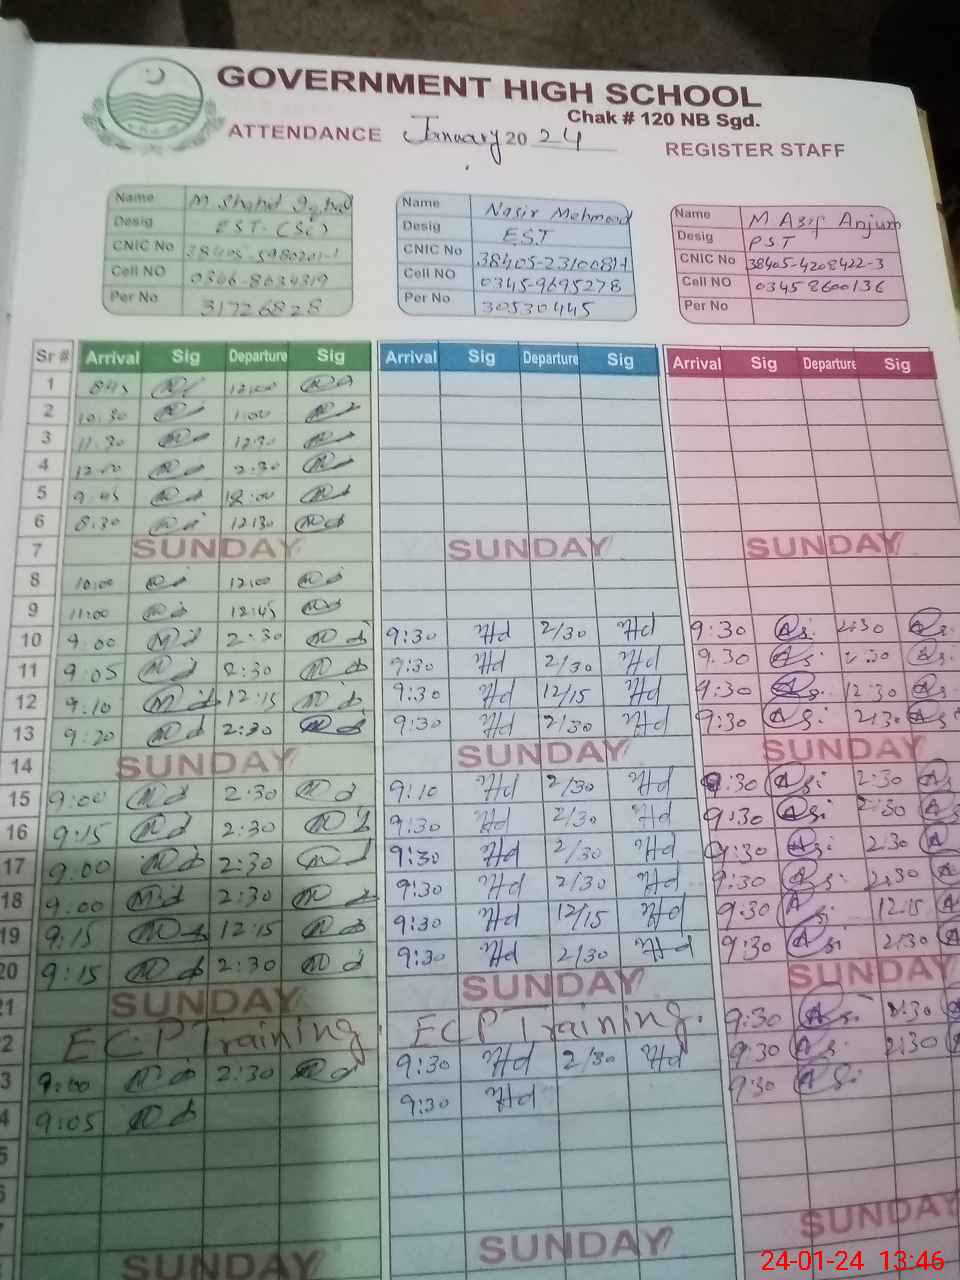 GOVERNMENT HIGH SCHOOL
Chak # 120 NB Sgd.
ATTENDANCE January 2024 REGISTER STAFF
Name M Shahid Iqbal
Desig EST-(Sc)
CNIC No
Cell NO 0366-8634319
Per No 31726828
Name Nasir Mehmood
Desig EST
CNIC No
Cell NO 0345-9695278
Per No 30530445
Name M Asif Anjum
Desig PST
CNIC No 38405-4208422-3
Cell NO 0345 8600136
Per No
Sr # Arrival Sig Departure Sig Arrival Sig Departure Sig Arrival Sig Departure Sig
1 8:45 12:00
2 10:30 1:00
3 11:30 12:30
4 12:00 2:30
5 9:45
6 8:30 12:30
7 SUNDAY SUNDAY SUNDAY
8 10:00 12:00
9 11:00 12:45
10 9:00 2:30 9:30 2/30 9:30 2:30
11 9:05 2:30 9:30 2/30 9.30 2:30
12 9:10 12:15 9:30 12/15 9:30 12:30
13 9:20 2:30 9:30 2/30 9:30 2:30
14 SUNDAY SUNDAY SUNDAY
15 9:00 2:30 9:10 2/30 9:30 2:30
16 9:15 2:30 9:30 2/30 9:30 2:30
17 9:00 2:30 9:30 2/30 9:30 2:30
18 9:00 2:30 9:30 2/30 9:30 2:30
19 9:15 12:15 9:30 12/15 9:30 12:15
20 9:15 2:30 9:30 2/30 9:30 2:30
21 SUNDAY SUNDAY SUNDAY
2 ECP Training ECP Training. 9:30 2:30
3 9:00 2:30 9:30 2/30 9:30 2:30
4 9:05 9:30 9:30
5
6
7
SUNDAY SUNDAY SUNDAY
24-01-24 13:46